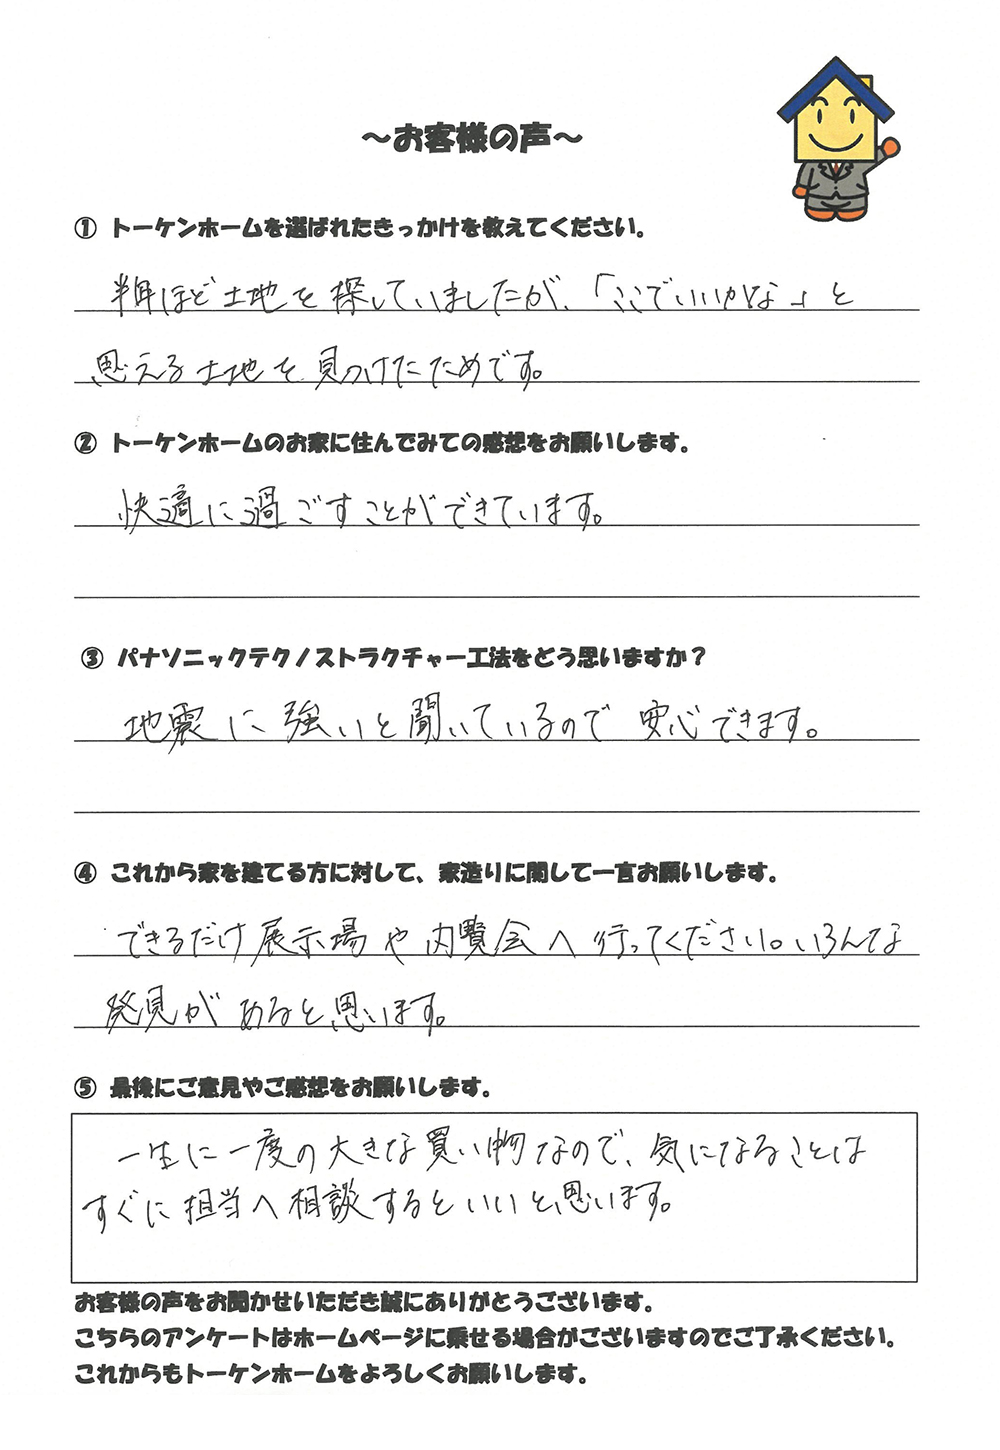 ～お客様の声～
① トーケンホームを選ばれたきっかけを教えてください。
半年ほど土地を探していましたが、「ここでいいかな」と
思える土地を見つけたためです。
② トーケンホームのお家に住んでみての感想をお願いします。
快適に過ごすことができています。
③ パナソニックテクノストラクチャー工法をどう思いますか？
地震に強いと聞いているので安心できます。
④ これから家を建てる方に対して、家造りに関して一言お願いします。
できるだけ展示場や内覧会へ行ってください。いろんな
発見があると思います。
⑤ 最後にご意見やご感想をお願いします。
一生に一度の大きな買い物なので、気になることは
すぐに担当へ相談するといいと思います。
お客様の声をお聞かせいただき誠にありがとうございます。
こちらのアンケートはホームページに乗せる場合がございますのでご了承ください。
これからもトーケンホームをよろしくお願いします。